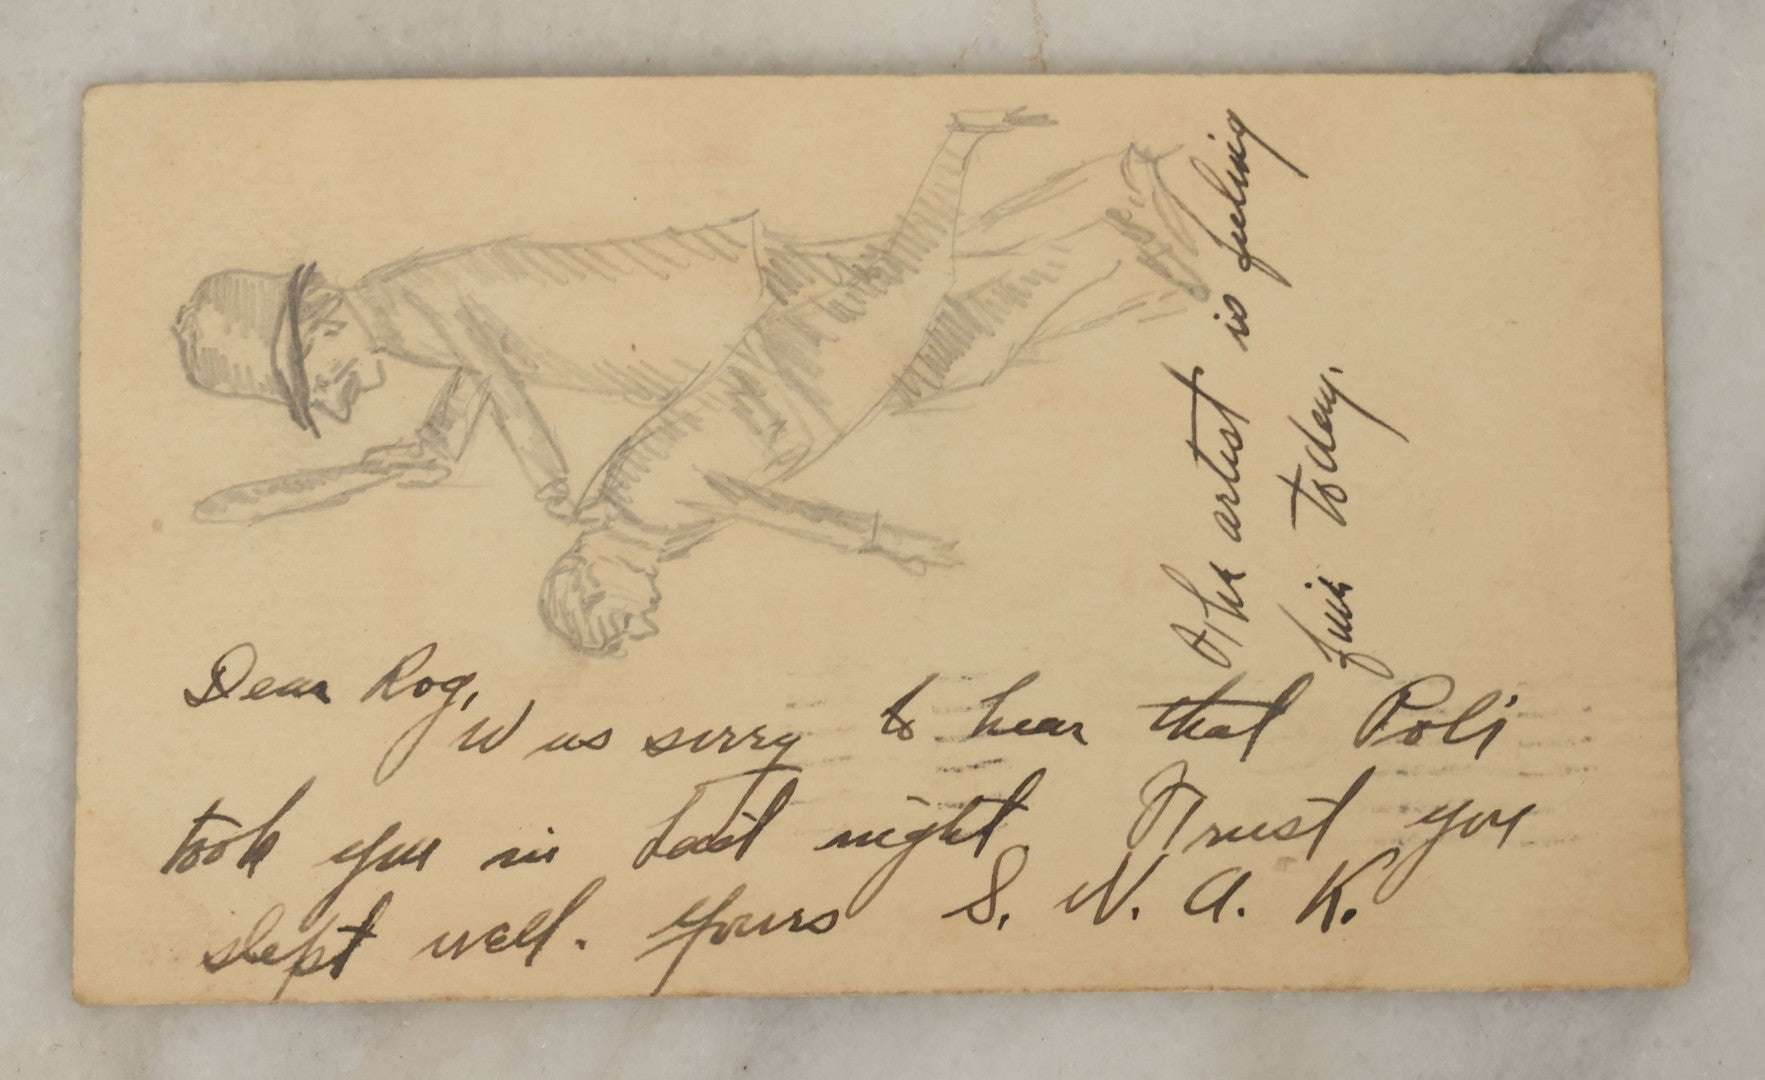 The artist is feeling
fine today.
Dear Rog,
Was sorry to hear that Poli
took you in last night. Trust you
slept well. Yours S. W. A. K.